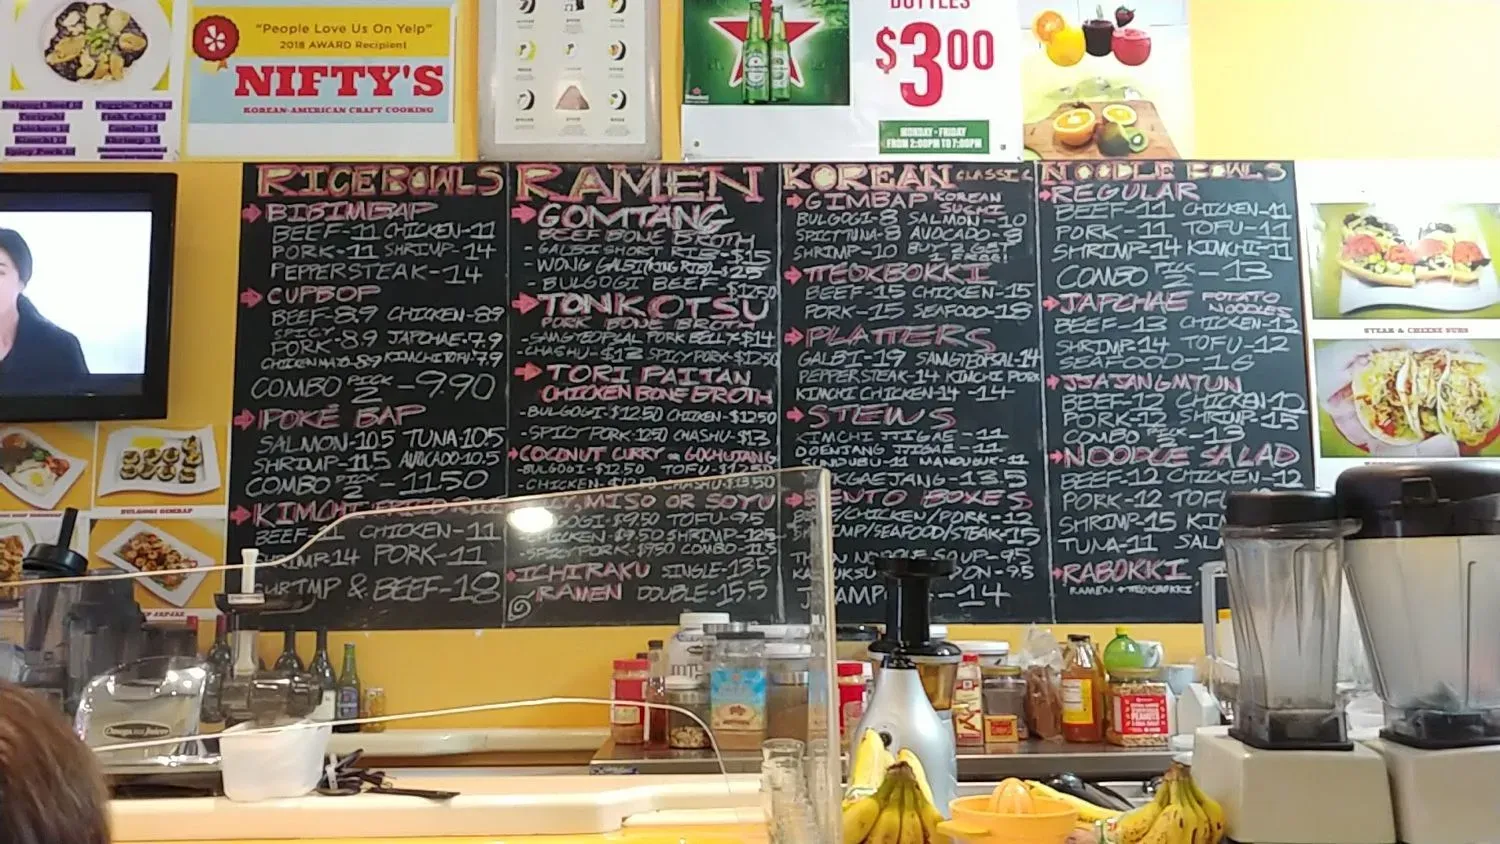 "People Love Us On Yelp"
2018 AWARD Recipient
NIFTY'S
KOREAN-AMERICAN CRAFT COOKING
BOTTLES
$3.00
MONDAY - FRIDAY
FROM 2:00PM TO 7:00PM
Bulgogi Beef 12
Teriyaki
Chicken 12
Kimchi 12
Spicy Pork 12
Veggie/Tofu 12
Fish Cake 12
Combo 14
Shrimp
RICE BOWLS
BIBIMBAP
BEEF-11 CHICKEN-11
PORK-11 SHRIMP-14
PEPPERSTEAK-14
CUPBOP
BEEF-8.9 CHICKEN-8.9
SPICY PORK-8.9 JAPCHAE-7.9
CHICKEN MAYO-8.9 KIMCHI TOFU-7.9
COMBO PICK 2 -9.90
POKE BAP
SALMON-10.5 TUNA-10.5
SHRIMP-11.5 AVOCADO-10.5
COMBO PICK 2 -11.50
KIMCHI FRIED RICE
BEEF-11 CHICKEN-11
SHRIMP-14 PORK-11
& BEEF-18
RAMEN
GOMTANG
BEEF BONE BROTH
-GALBI SHORT RIB-$15
-WONG GALBI (KING RIB)-$25
-BULGOGI BEEF-$12.50
TONKOTSU
PORK BONE BROTH
-SAMGYEOPSAL PORK BELLY-$14
-CHASHU-$13 SPICY PORK-$12.50
TORI PAITAN
CHICKEN BONE BROTH
-BULGOGI-$12.50 CHICKEN-$12.50
-SPICY PORK-12.50 CHASHU-$13
COCONUT CURRY or GOCHUJANG
-BULGOGI-$12.50 TOFU-$12.50
-CHICKEN-$12.50 CHASHU-$13.50
MISO OR SOYU
-$9.50 TOFU-9.5
CHICKEN-$9.50 SHRIMP-12.5
-SPICY PORK-$9.50 COMBO-11.5
ICHIRAKU SINGLE-13.5
RAMEN DOUBLE-15.5
KOREAN CLASSIC
GIMBAP KOREAN SUSHI
BULGOGI-8 SALMON-10
SPICY TUNA-8 AVOCADO-8
SHRIMP-10 BUY 2 GET 1 FREE!
TTEOKBOKKI
BEEF-15 CHICKEN-15
PORK-15 SEAFOOD-18
PLATTERS
GALBI-19 SAMGYEOPSAL-14
PEPPERSTEAK-14 KIMCHI PORK
KIMCHI CHICKEN-14 -14
STEWS
KIMCHI JJIGAE-11
DOENJANG JJIGAE-11
SUNDUBU-11 MANDUGUK-11
YUKGAEJANG-13.5
BENTO BOXES
/CHICKEN/PORK-12
SHRIMP/SEAFOOD/STEAK-15
NOODLE SOUP-9.5
-9.5
-14
NOODLE BOWLS
REGULAR
BEEF-11 CHICKEN-11
PORK-11 TOFU-11
SHRIMP-14 KIMCHI-11
COMBO PICK 2 -13
JAPCHAE POTATO NOODLES
BEEF-13 CHICKEN-12
SHRIMP-14 TOFU-12
SEAFOOD-16
JJAJANGMYUN
BEEF-12 CHICKEN-12
PORK-12 SHRIMP-15
COMBO PICK 2 -13
NOODLE SALAD
BEEF-12 CHICKEN-12
PORK-12
SHRIMP-15
TUNA-11
RABOKKI
RAMEN + TTEOKBOKKI
STEAK & CHEESE SUBS
BULGOGI GIMBAP
Omega Juicers
PEANUTS